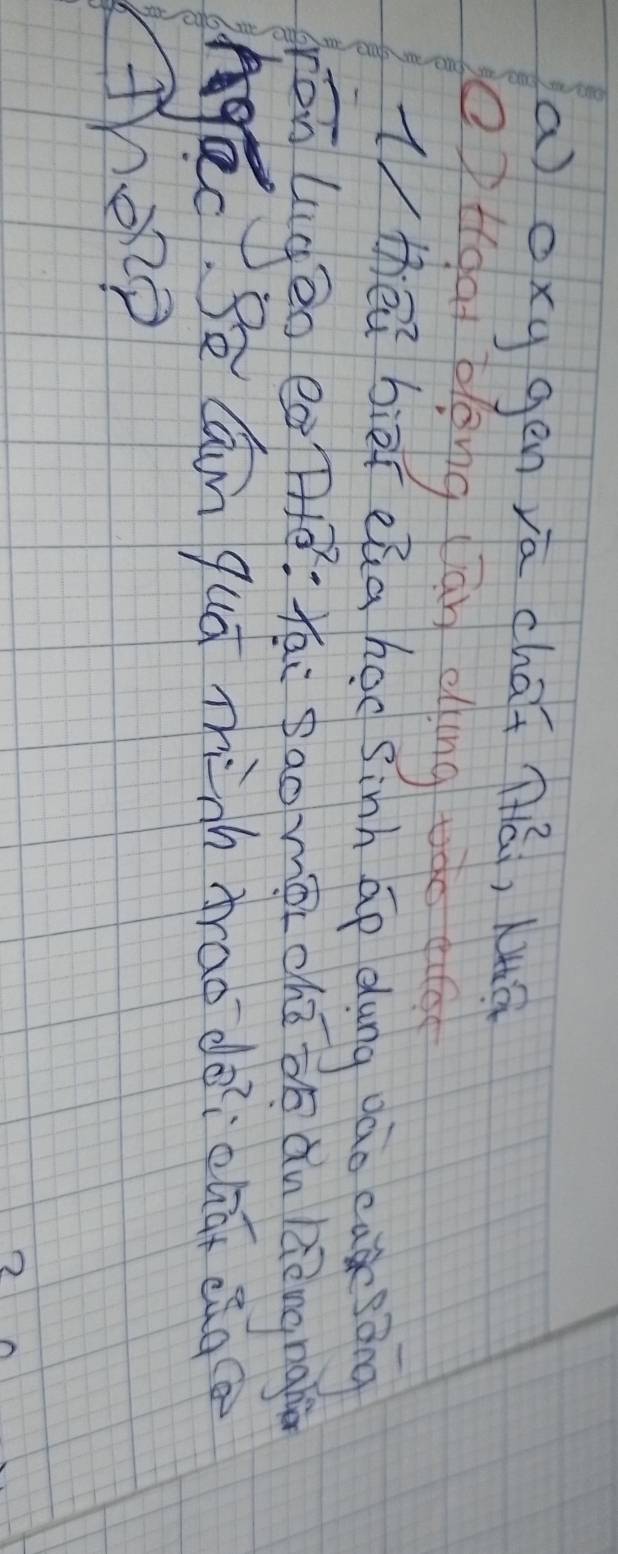 a) oxygen và chất thải, nhiệt
C) Hoạt động vận dụng vào cuộc
1/ Hiểu biết của học sinh áp dụng vào cuộc sống
rèn luyện cơ thể: tại sao một chế độ ăn kiêng nghiêm
ngặc. Sẽ làm quá trình trao đổi chất của cơ
thể